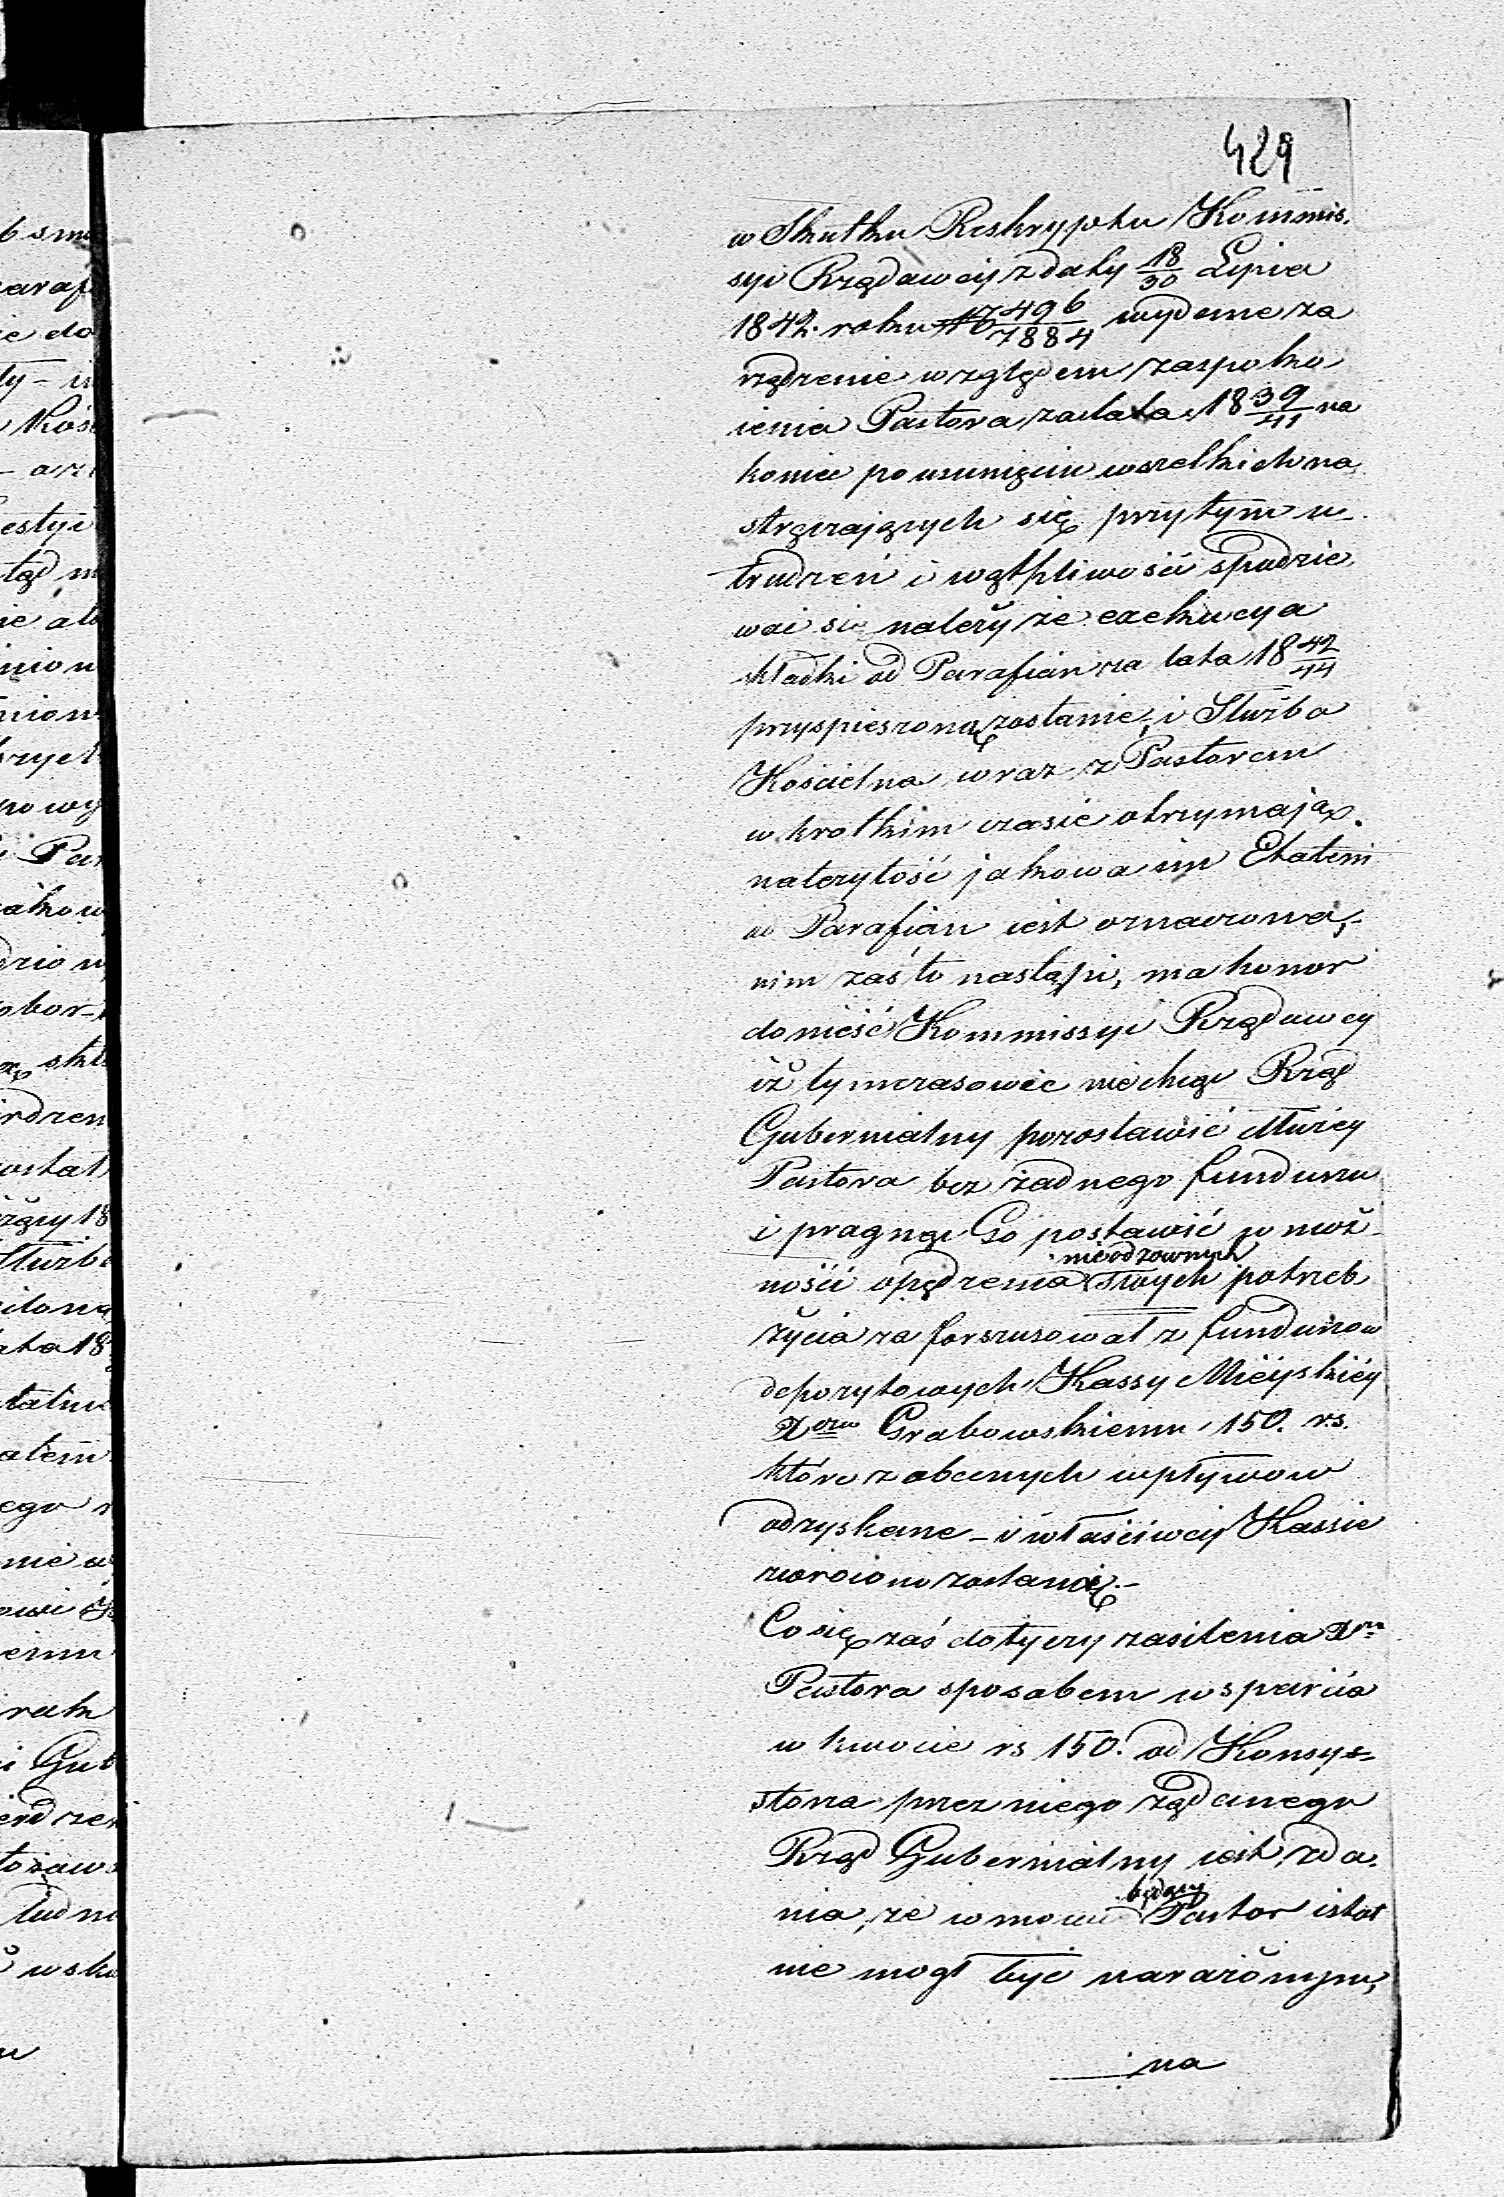 429
w Skutku Reskryptu Kommis.
syi Rządowey z daty 18/30 Lipca
1842. roku No 7496/7884 wydene za
rządzenie względem zaspoko
ienia Pastora za lata 1839/41 na
koniec po usunięciu wszelkich na
stręczaiących się przytym u_
trudzeń i wątpliwości spodzie
wać się należy że exekucya
składki od Parafian za lata 1842/44
przyspieszoną zostanie, i Służba
Kościelna wraz z Pastorem
w krotkim czasie otrzymają
należytość jakowa im Etatem
od Parafian iest oznaczona,-
nim zaś to nastąpi, ma honor
donieść Kommissyi Rządowey
iż tymczasowie niechcąc Rząd
Gubernialny pozostawić
Pastora bez żadnego funduszu
i pragnąc Go postawić w moż_
ności opędzenia nieodzownych swych potrzeb
życia zaforszusował z funduszow
depozytowych Kassy Mieyskiéy
Xdzu Grabowskiemu 150. rs.
które z obecnych wpływow
odzyskane - i właściwey Kassie
zwrocono zostaną.-
Co się zaś dotyczy zasilenia X
Pastora sposobem wsparcia
w kwocie rs 150. od Konsys=
storza przez niego żądanego
Rząd Gubernialny iest zda.
nia, że w mowie będący Pastor
nie mogł być narażonym,
na
6
do
Kośc
estyi
tąd
nion
Pa
obor-
skł
Służb
ata 18
atem
ego
nie
Gub